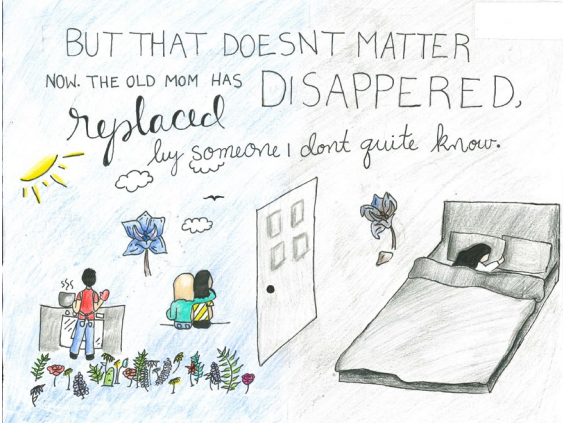 BUT THAT DOESNT MATTER
NOW. THE OLD MOM HAS DISAPPERED,
replaced
by someone I dont quite know.